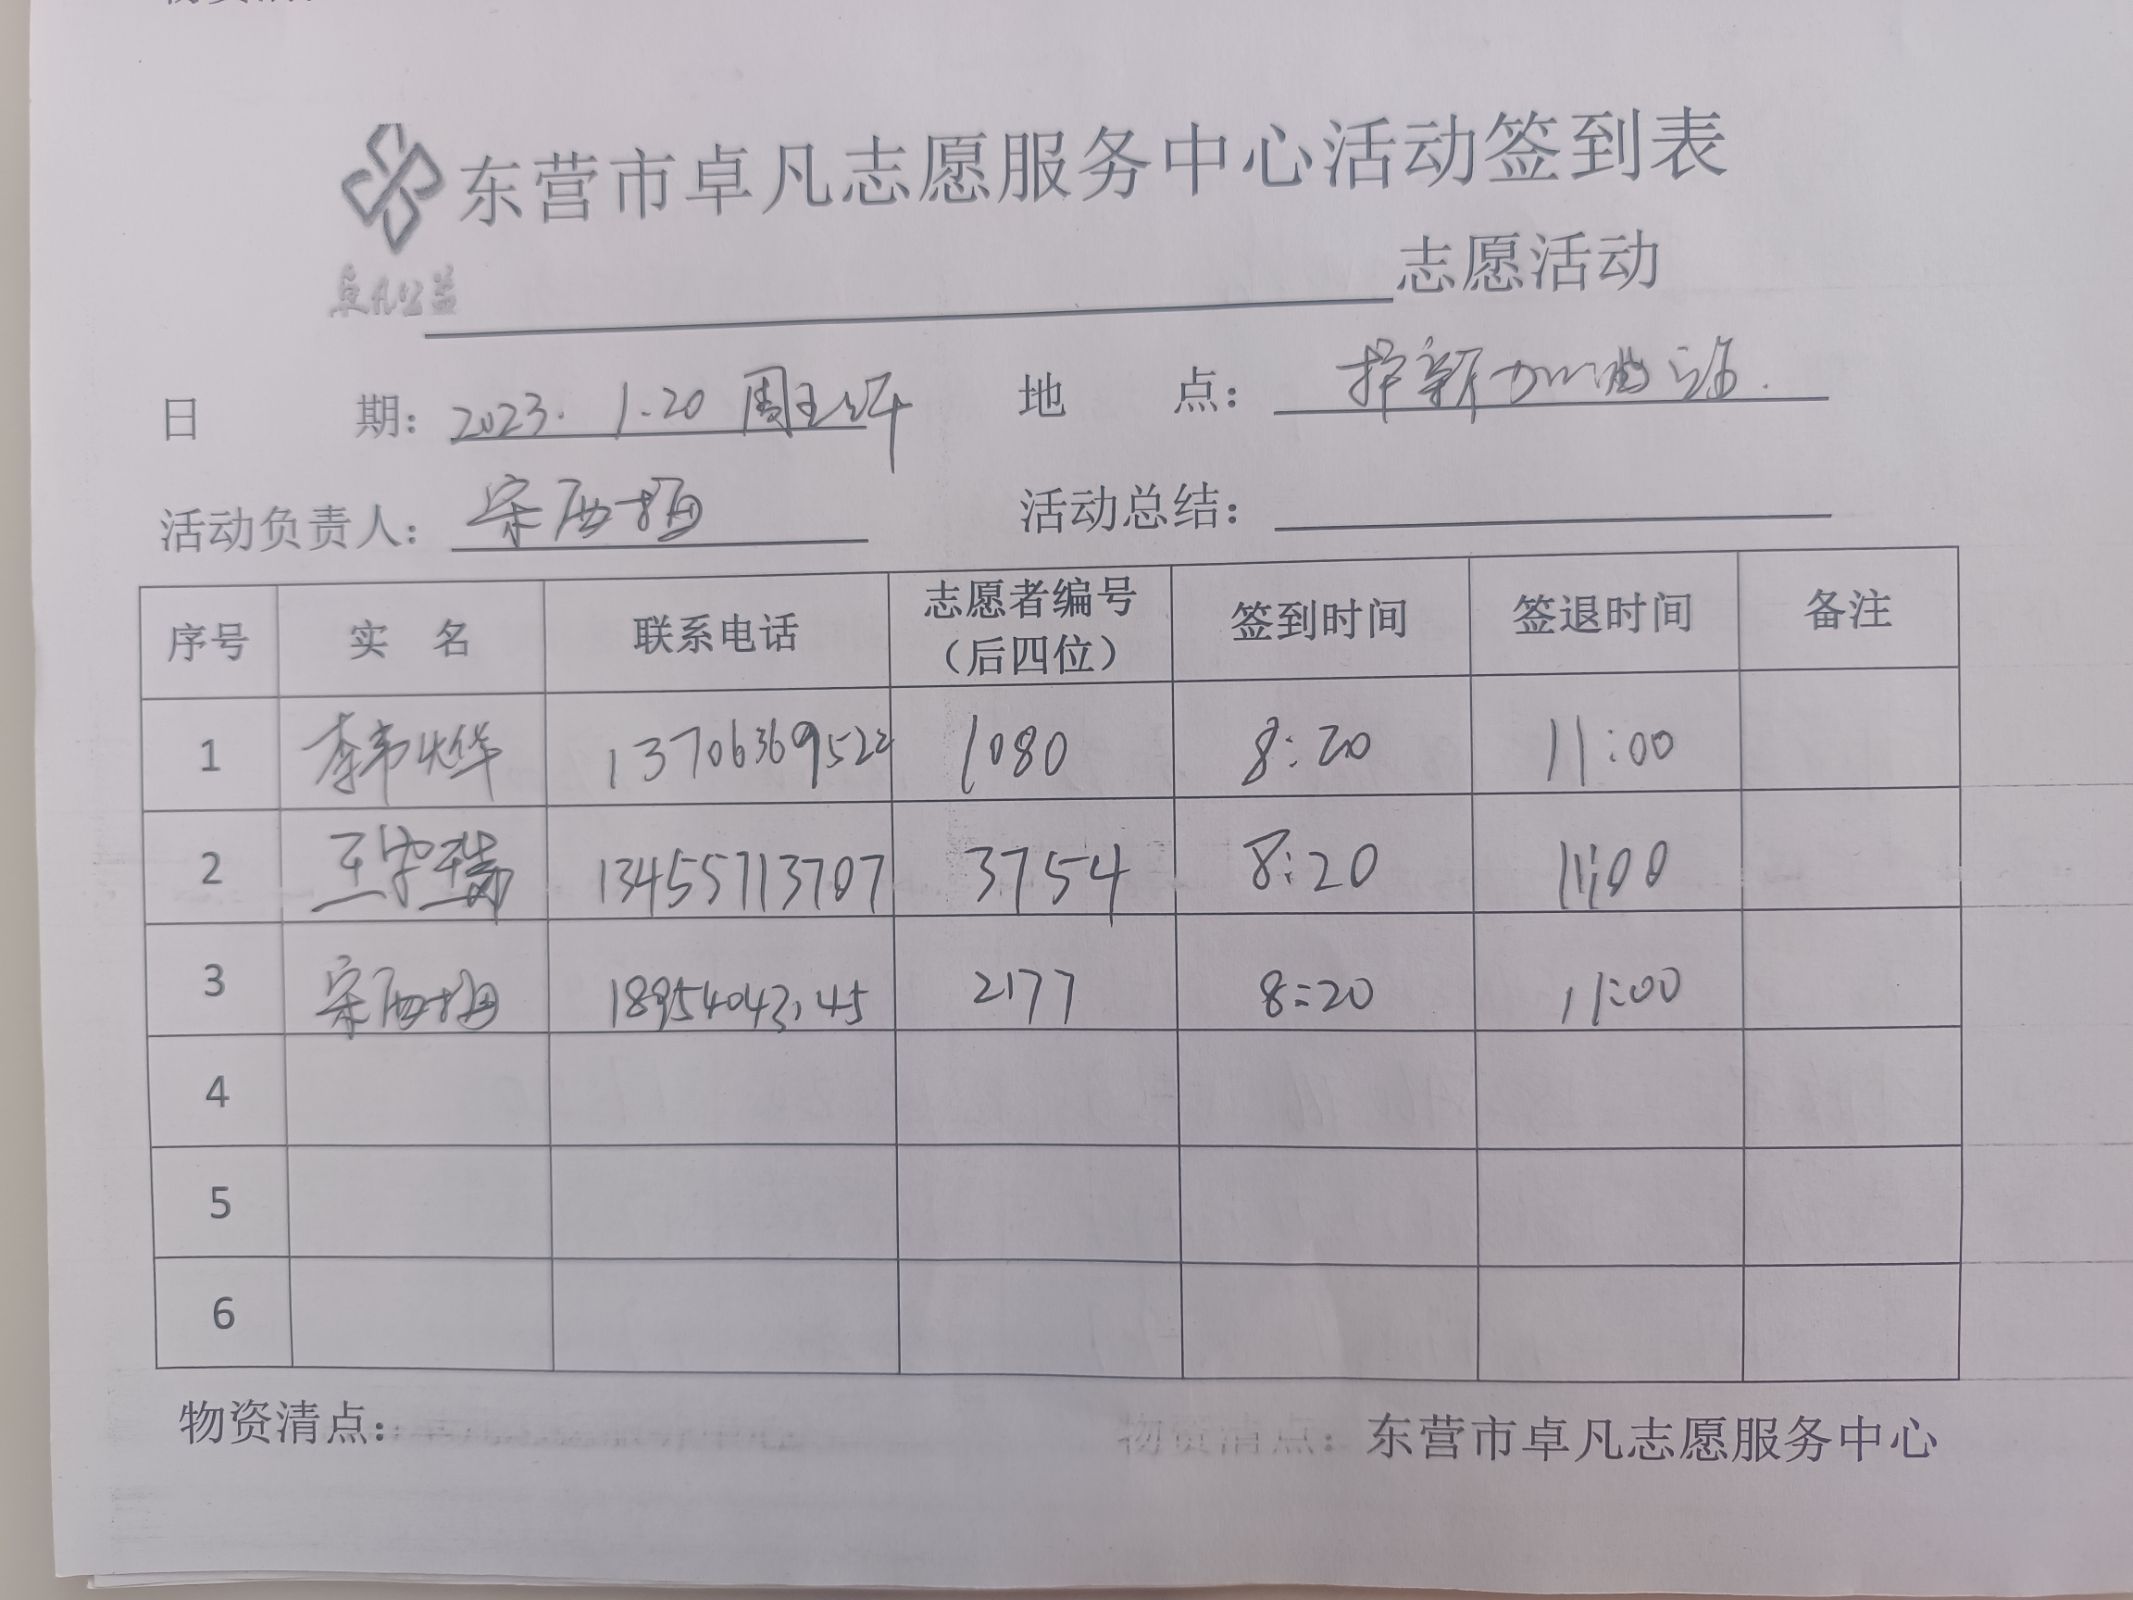 东营市卓凡志愿服务中心活动签到表
卓凡公益
志愿活动
日 期： 2023.1.20 周五上午 地 点： 加油站.
活动负责人： 宋西梅 活动总结：
序号 实 名 联系电话 志愿者编号（后四位） 签到时间 签退时间 备注
1 李韦烨 13706369522 1080 8:20 11:00
2 王守瑞 13455713707 3754 8:20 11:00
3 宋西梅 18954043145 2177 8:20 11:00
4
5
6
物资清点： 物资清点：东营市卓凡志愿服务中心